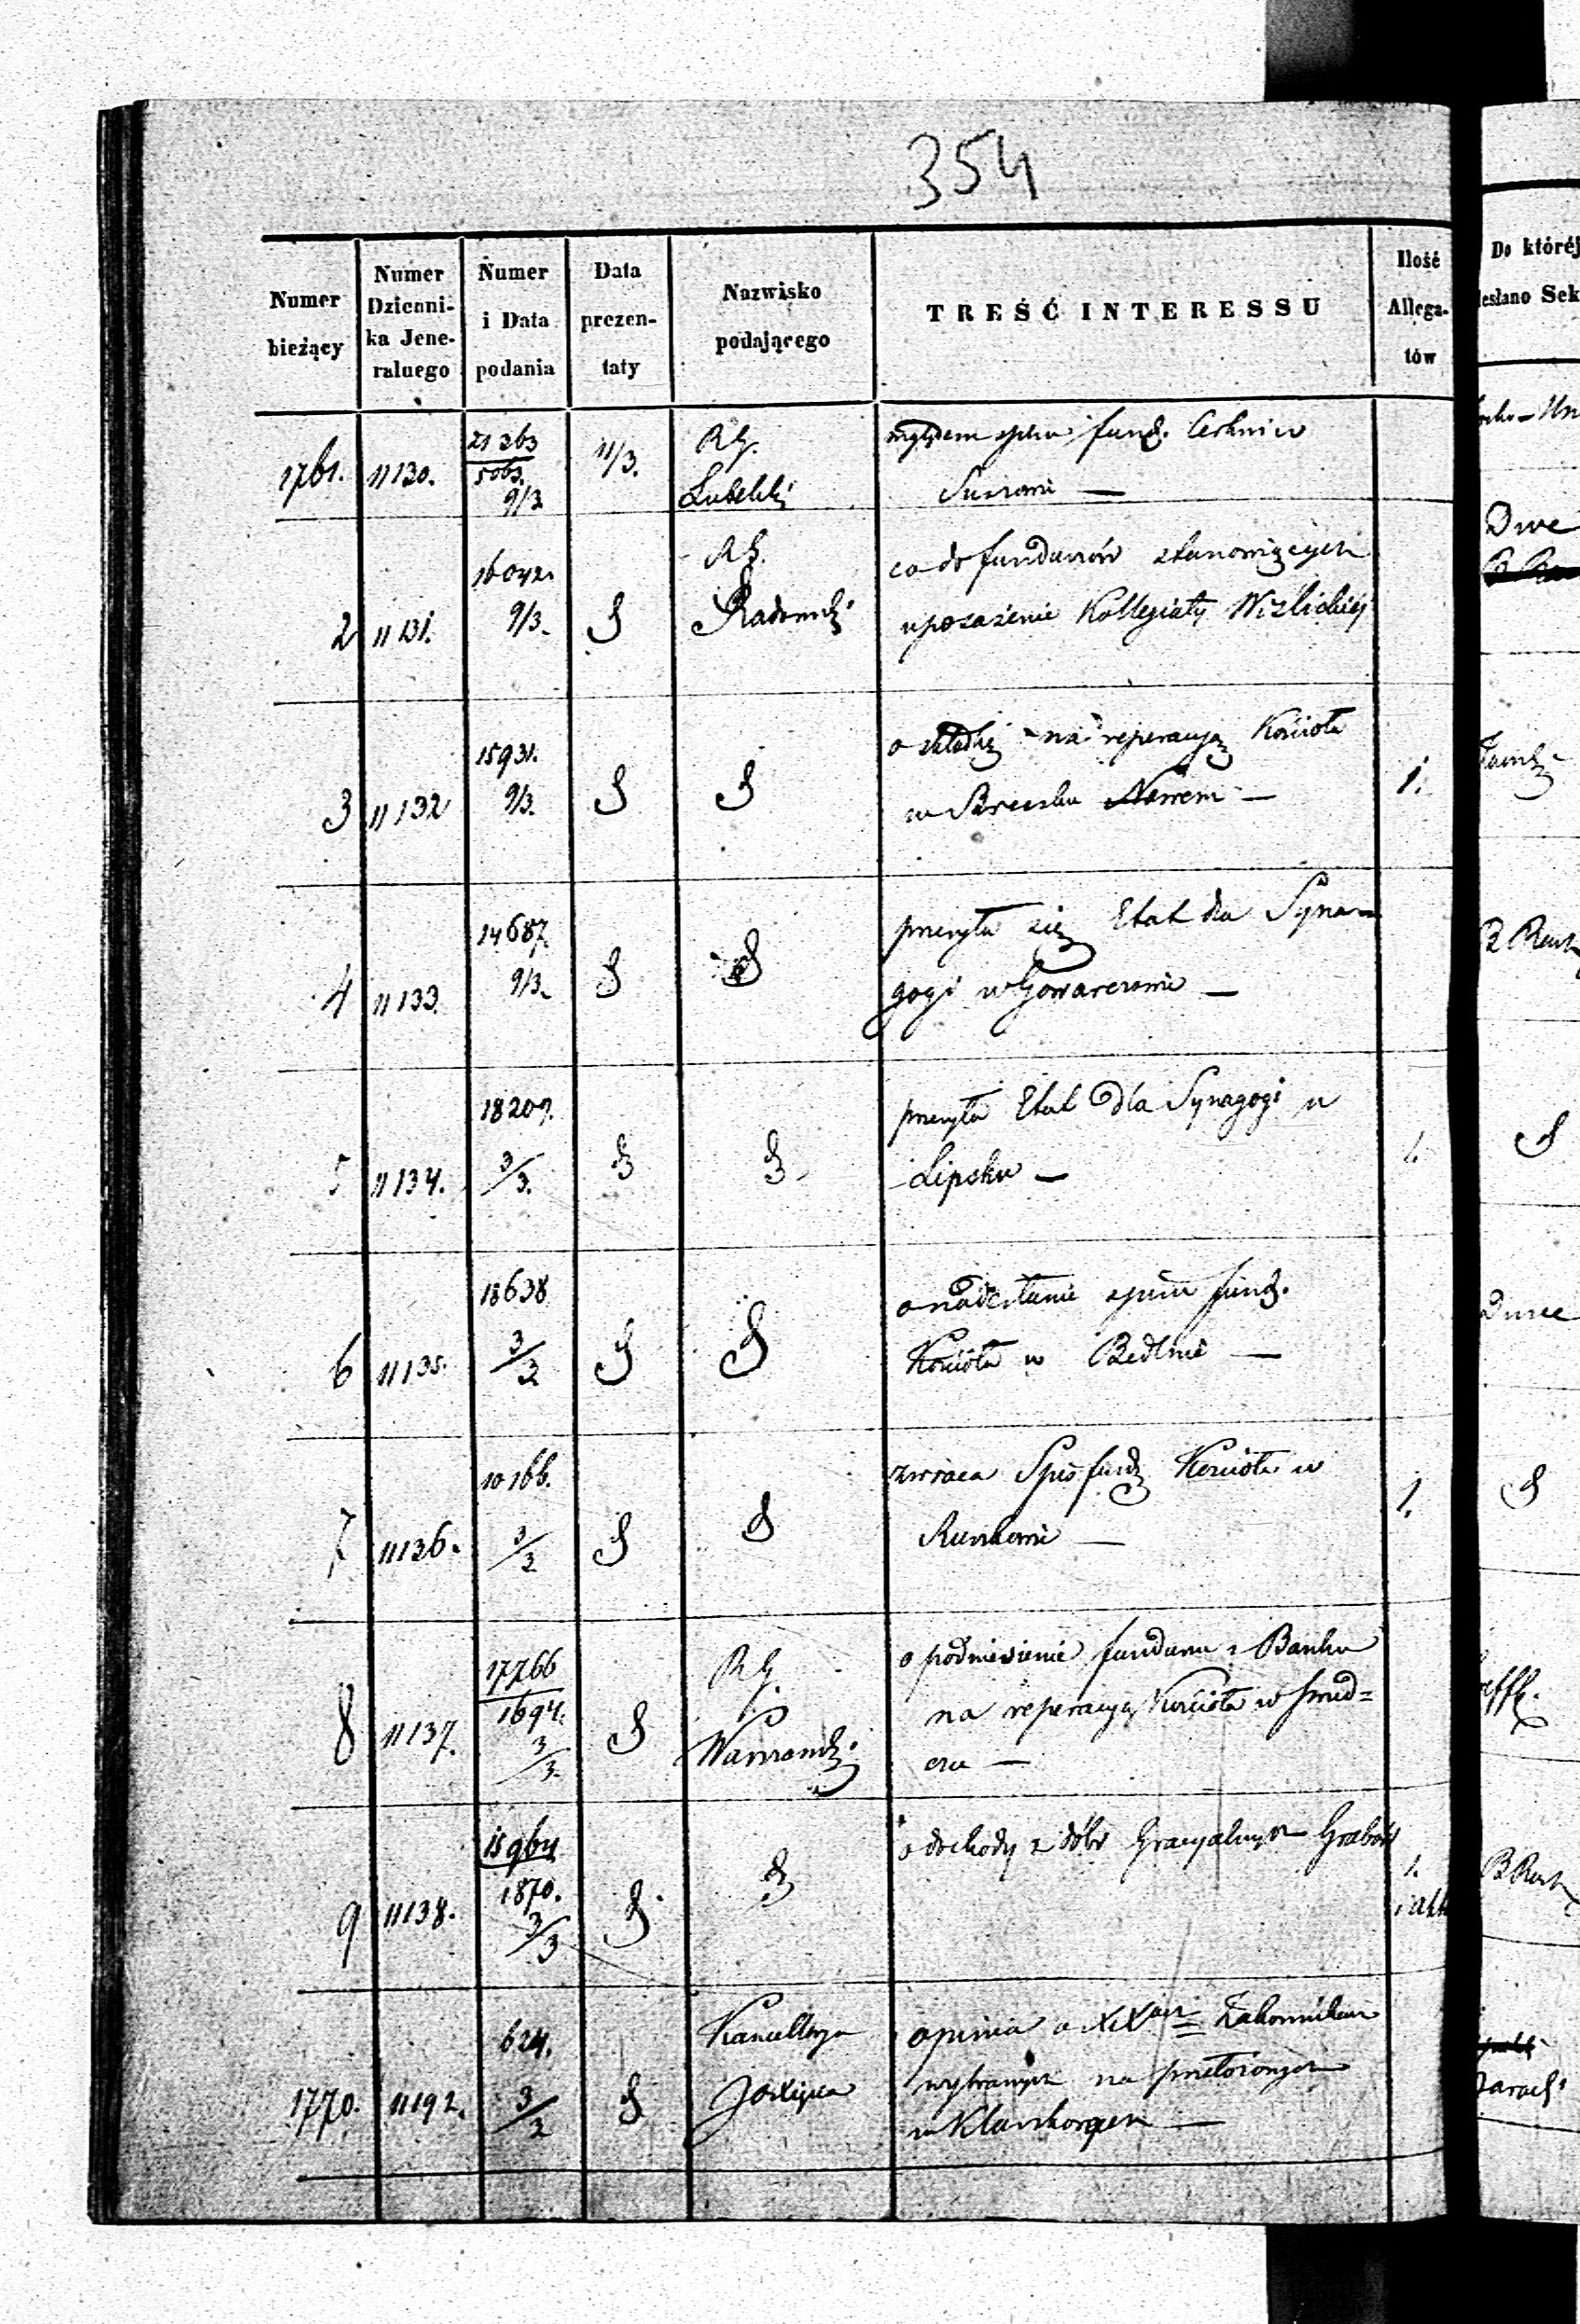 354
Numer bieżący | Numer Dzienni-ka Jene-ralnego | Numer i Data podania | Data prezen-taty | Nazwisko podającego | TREŚĆ INTERESSU | Ilość Allega-tów | Do któréj
1761. | 11130. | 21263 5063. 9/3 | 11/3. | R.G. Lubelski | względem spisu fund. Cerkwi w
—
2 | 11131. | 16042. 9/3. | R.G. Radomski | co do funduszów stanowiących
uposażenie Kollegiaty Wiślickiéj
3 | 11132 | 15931. 9/3. | o składkę na reperacyą Kościoła | 1.
w Brzesku Nowem —
4 | 11133. | 14687. 9/3. | przesyła się Etat dla Syna-
gogi w Gowarczowie —
5 | 11134. | 18209. 3/3. | przesyła Etat dla Synagogi w
Lipsku —
6 | 11135. | 18638 3/3 | o nadesłanie spisu fund.
Kościoła w Bedlnie —
7 | 11136. | 10166. 3/3 | zwraca Spis fund Kościoła w | 1.
—
8 | 11137. | 17766 1694. 3/3. | R.G. Warszawski | o podniesienie funduszu z Banku
na reperacyą Kościoła w
—
9 | 11138. | 15964 1870. 3/3 | o dochody z dóbr Gracyalnych Grabów | 1.
1770. | 11192. | 624. 3/3 | Kancellarya | opinia o XX Zakonnikach
wybranych na przełożonych
w Klasztorach —